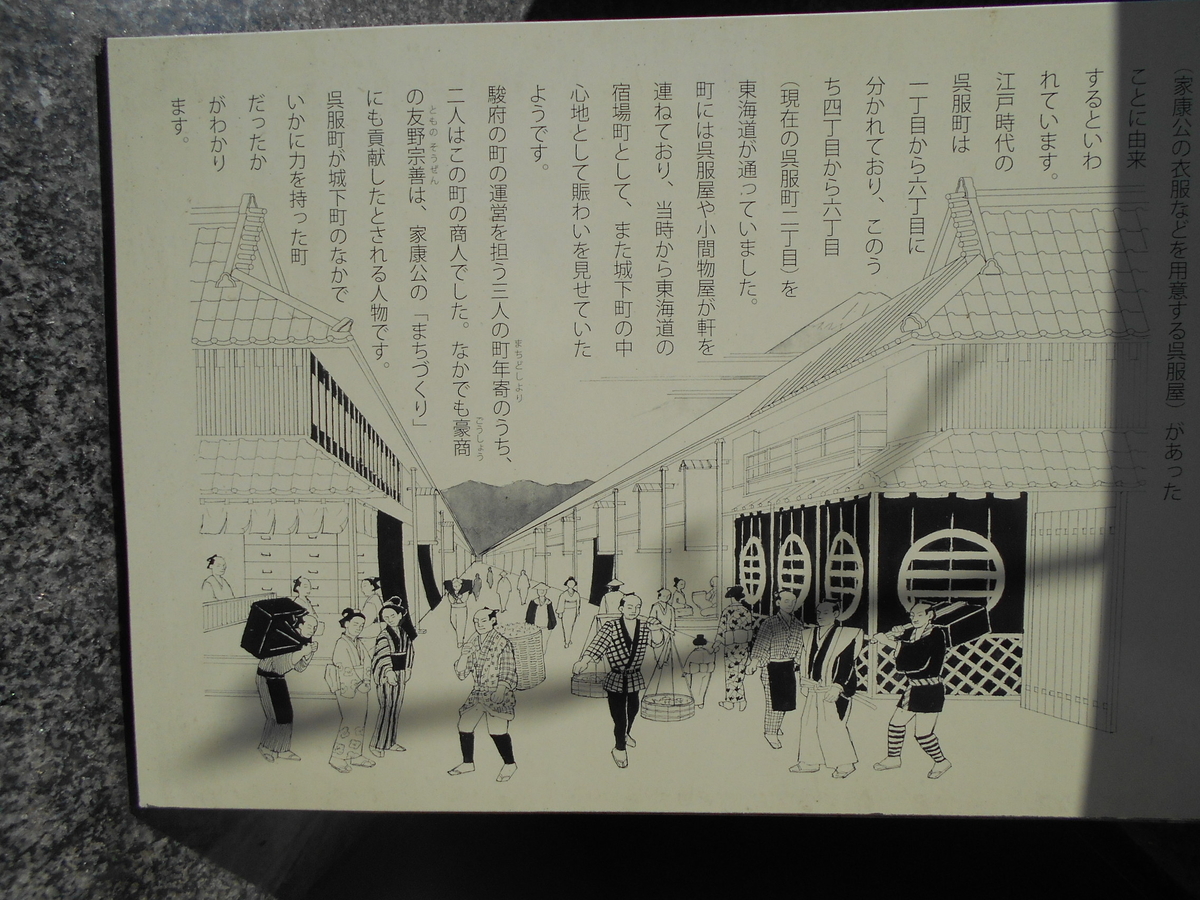 （家康公の衣服などを用意する呉服屋）があった
ことに由来
するといわ
れています。
江戸時代の
呉服町は
一丁目から六丁目に
分かれており、このう
ち四丁目から六丁目
（現在の呉服町二丁目）を
東海道が通っていました。
町には呉服屋や小間物屋が軒を
連ねており、当時から東海道の
宿場町として、また城下町の中
心地として賑わいを見せていた
ようです。
駿府の町の運営を担う三人の町年寄のうち、
まちどしより
二人はこの町の商人でした。なかでも豪商
ごうしょう
の友野宗善は、家康公の「まちづくり」
とものそうぜん
にも貢献したとされる人物です。
呉服町が城下町のなかで
いかに力を持った町
だったか
がわかり
ます。